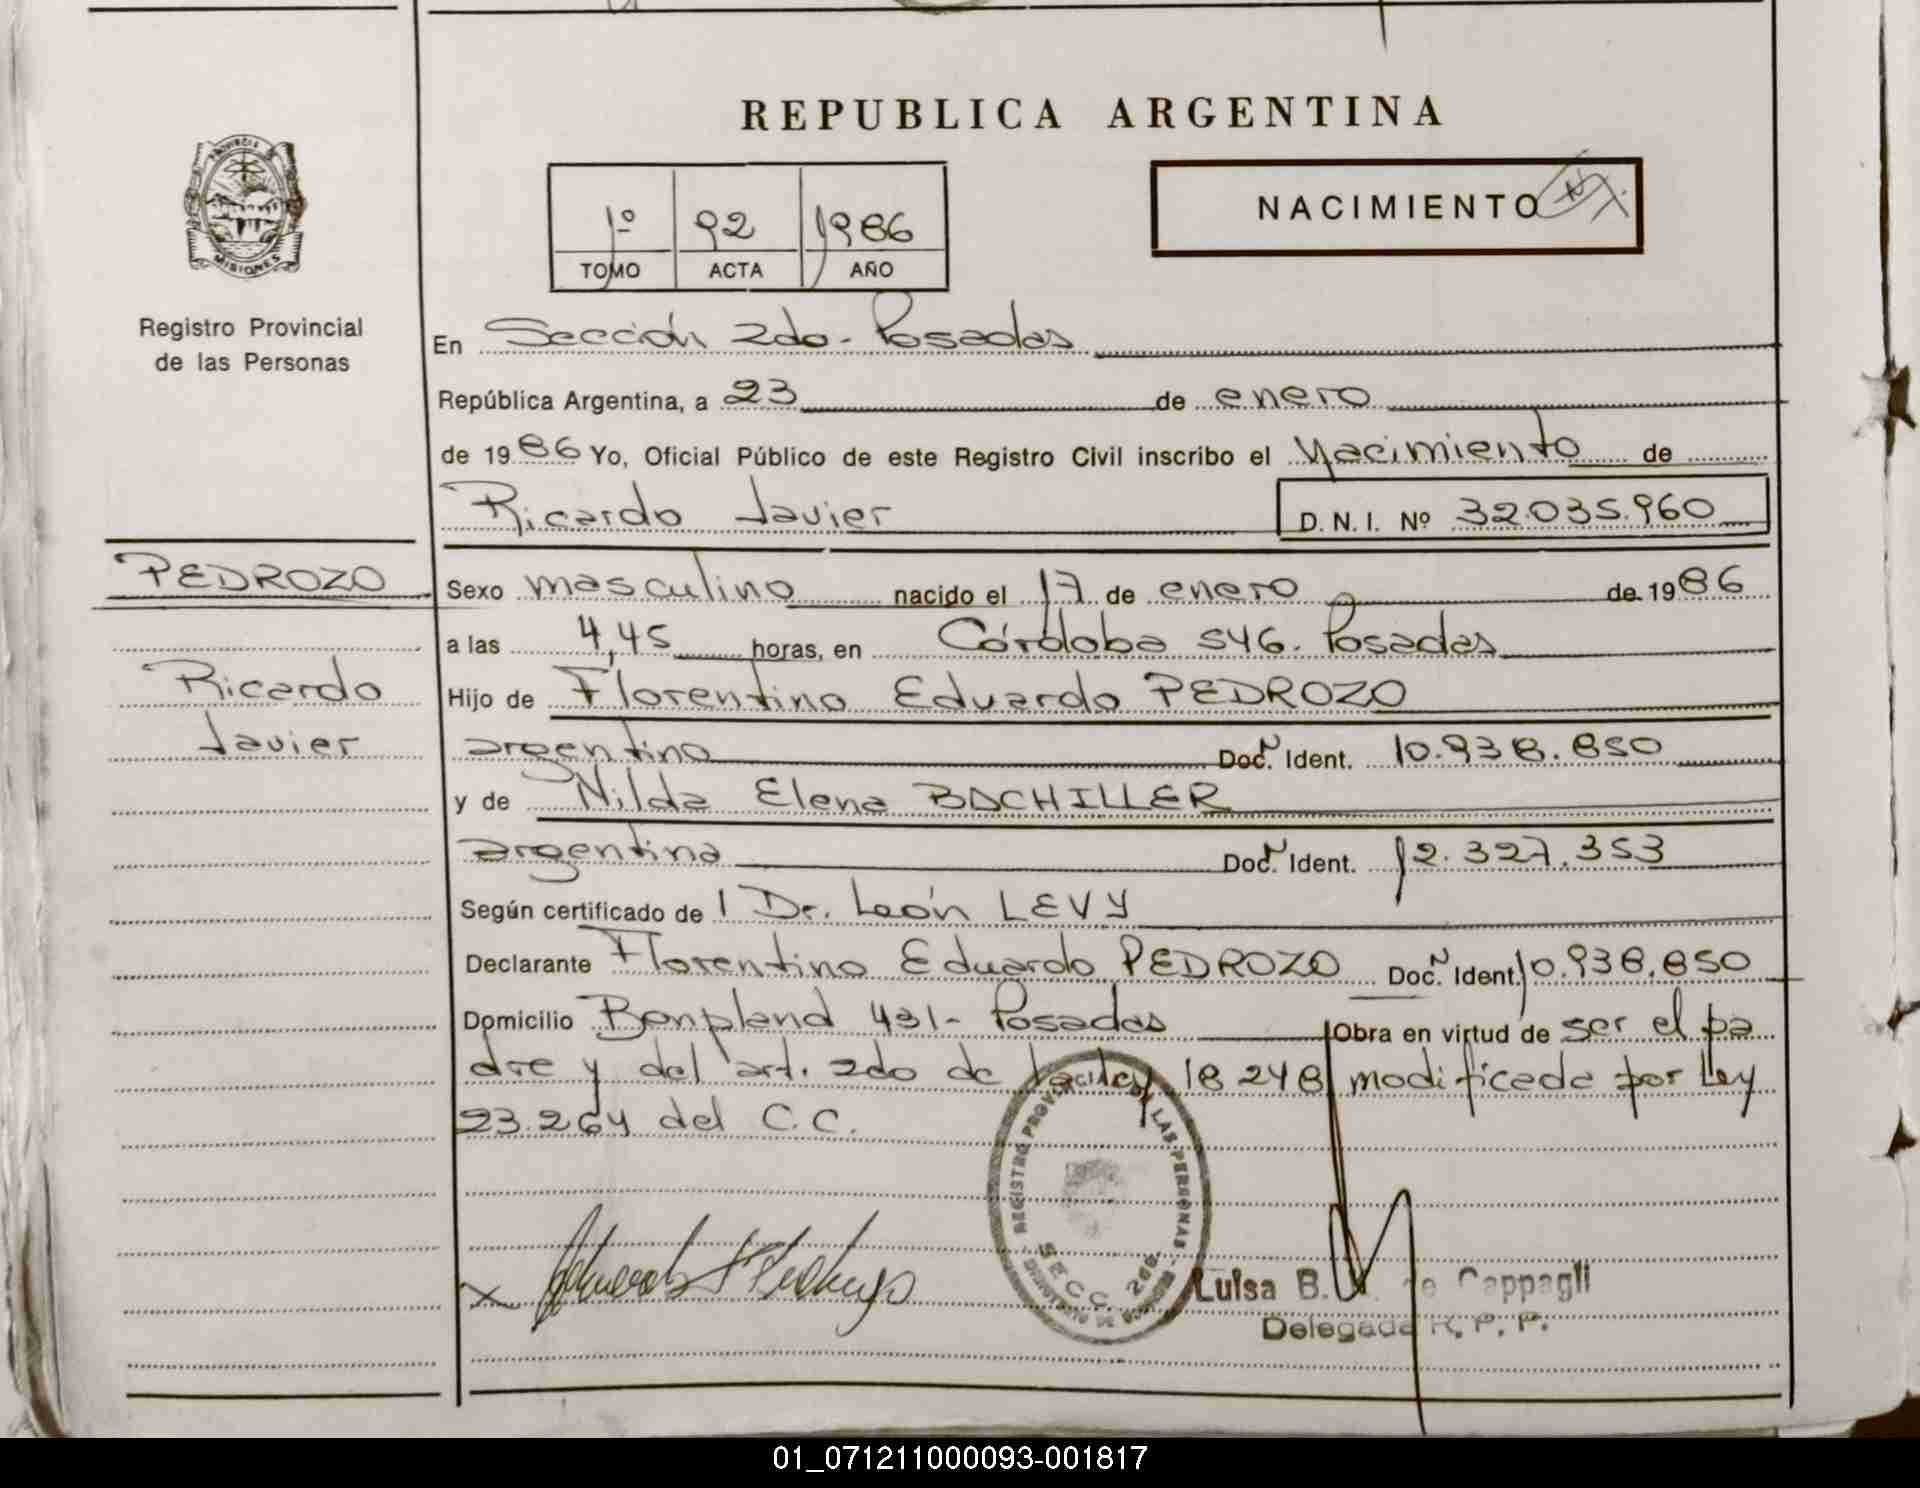 REPUBLICA ARGENTINA
PROVINCIA DE
MISIONES
Registro Provincial
de las Personas
1º 92 1986
TOMO ACTA AÑO
NACIMIENTO
En Sección 2do. Posadas
República Argentina, a 23 de enero
de 1986 Yo, Oficial Público de este Registro Civil inscribo el Nacimiento de
Ricardo Javier D. N. I. Nº 32.035.960
PEDROZO
Ricardo
Javier
Sexo masculino nacido el 17 de enero de 1986
a las 4,45 horas, en Córdoba 546. Posadas
Hijo de Florentino Eduardo PEDROZO
argentino Doc. Ident. 10.938.850
y de Nilda Elena BACHILLER
argentina Doc. Ident. 12.327.353
Según certificado de l Dr. León LEVY
Declarante Florentino Eduardo PEDROZO Doc. Ident. 10.938.850
Domicilio Bonpland 431- Posadas Obra en virtud de ser el pa
dre y del art. 2do de la ley 18248 modificada por Ley
23.264 del C.C.
REGISTRO PROVINCIAL DE LAS PERSONAS
SECC. 2da.
Luisa B. de Cappagli
Delegada R. P. P.
01_071211000093-001817